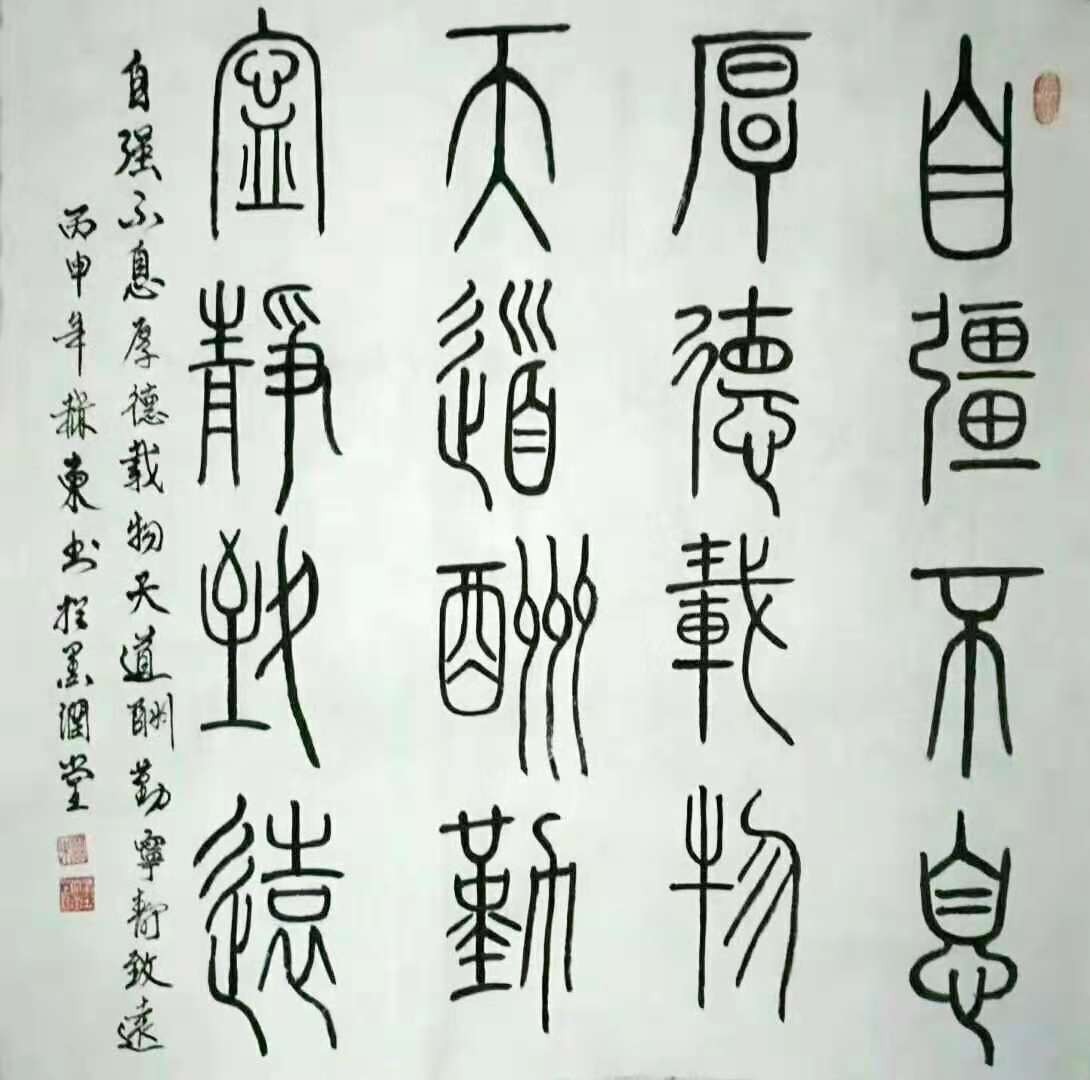 自彊不息
厚德載物
天道酬勤
寍靜致遠
自强不息厚德載物天道酬勤寧靜致遠
丙申年赫東书於墨潤堂